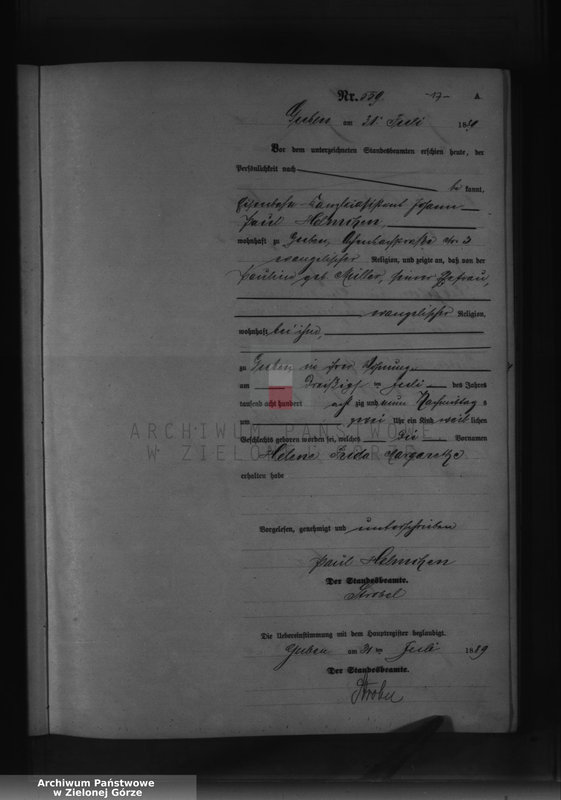 Nr. 559. -17- A
Guben am 31. Juli 1889
Vor dem unterzeichneten Standesbeamten erschien heute, der
Persönlichkeit nach
be kannt,
Johann
Paul Helmchen,
wohnhaft zu Guben,
evangelischer Religion, und zeigte an, daß von der
Pauline geb. Müller, seiner Ehefrau,
evangelischer Religion,
wohnhaft bei ihm,
zu Guben in ihrer Wohnung
am dreißigsten Juli des Jahres
tausend acht hundert acht zig und neun Nachmittag s
um zwei Uhr ein Kind weib lichen
Geschlechts geboren worden sei, welches die Vornamen
Helene Frida Margarethe
erhalten habe
Vorgelesen, genehmigt und unterschrieben
Paul Helmchen
Der Standesbeamte.
Strobel
Die Uebereinstimmung mit dem Hauptregister beglaubigt.
Guben am 31. ten Juli 1889
Der Standesbeamte.
Strobel
ARCHIWUM PAŃSTWOWE
W ZIELONEJ GÓRZE
Archiwum Państwowe
w Zielonej Górze